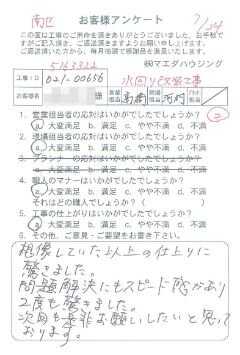 南区
お客様アンケート
7/24
この度は工事のご用命を頂きありがとうございました。お手数で
すがご記入頂き、ご返送頂きますようお願い申し上げます。
ご返送頂いた方から、毎月抽選で感謝品を進呈します。
5163322
㈱マエダハウジング
工事ID 021-00656 水回り改装工事
お客様名 様 営業担当 現場担当 河村
1. 営業担当者の応対はいかがでしたでしょうか?
a. 大変満足 b. 満足 c. やや不満 d. 不満
2. 現場担当者の応対はいかがでしたでしょうか?
a. 大変満足 b. 満足 c. やや不満 d. 不満
3. プランナーの応対はいかがでしたでしょうか?
a. 大変満足 b. 満足 c. やや不満 d. 不満
4. 職人のマナーはいかがでしたでしょうか?
a. 大変満足 b. 満足 c. やや不満 d. 不満
それはどの職人でしょうか?( )
5. 工事の仕上がりはいかがでしたでしょうか?
a. 大変満足 b. 満足 c. やや不満 d. 不満
6. その他、ご意見・ご要望をお書き下さい。
想像していた以上の仕上りに
驚きました。
問題解決にもスピード感があり
2度も驚きました。
次回も是非お願いしたいと思って
おります。